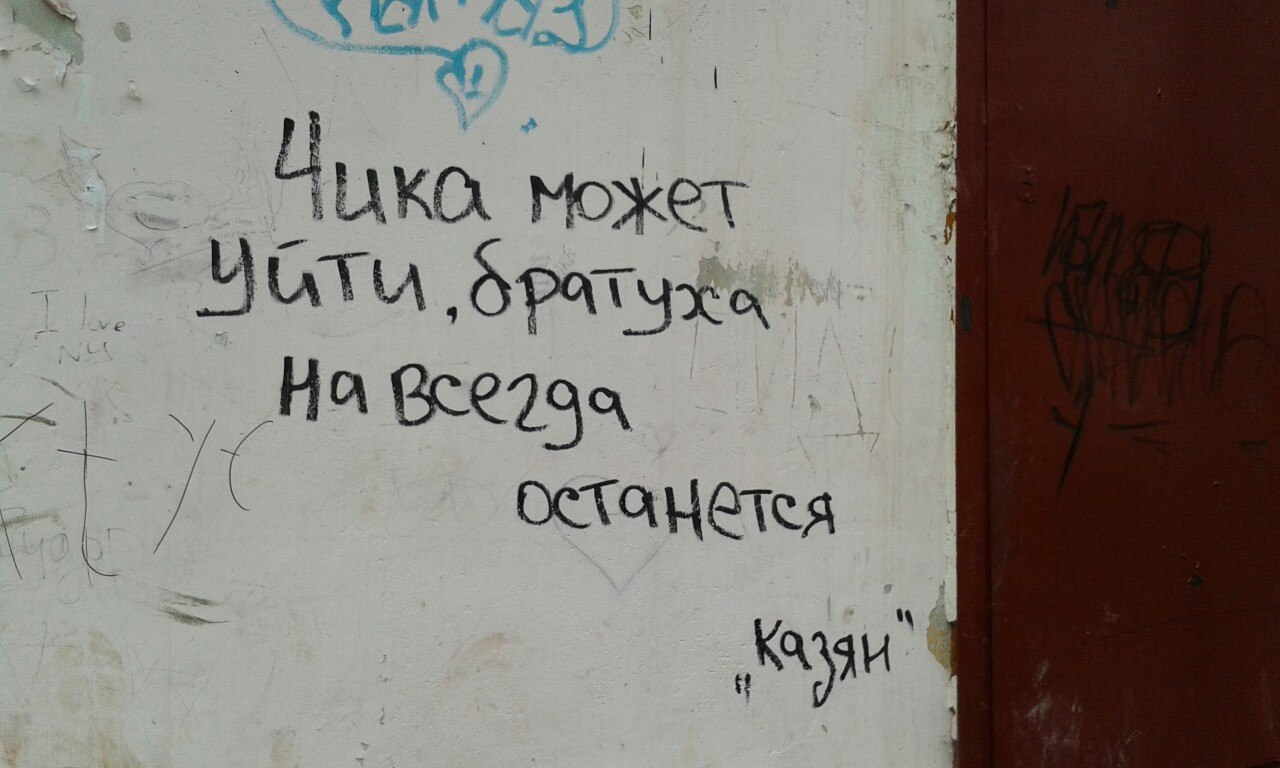 Чика может
уйти, братуха
на всегда
останется
„Казян"
I love
NY